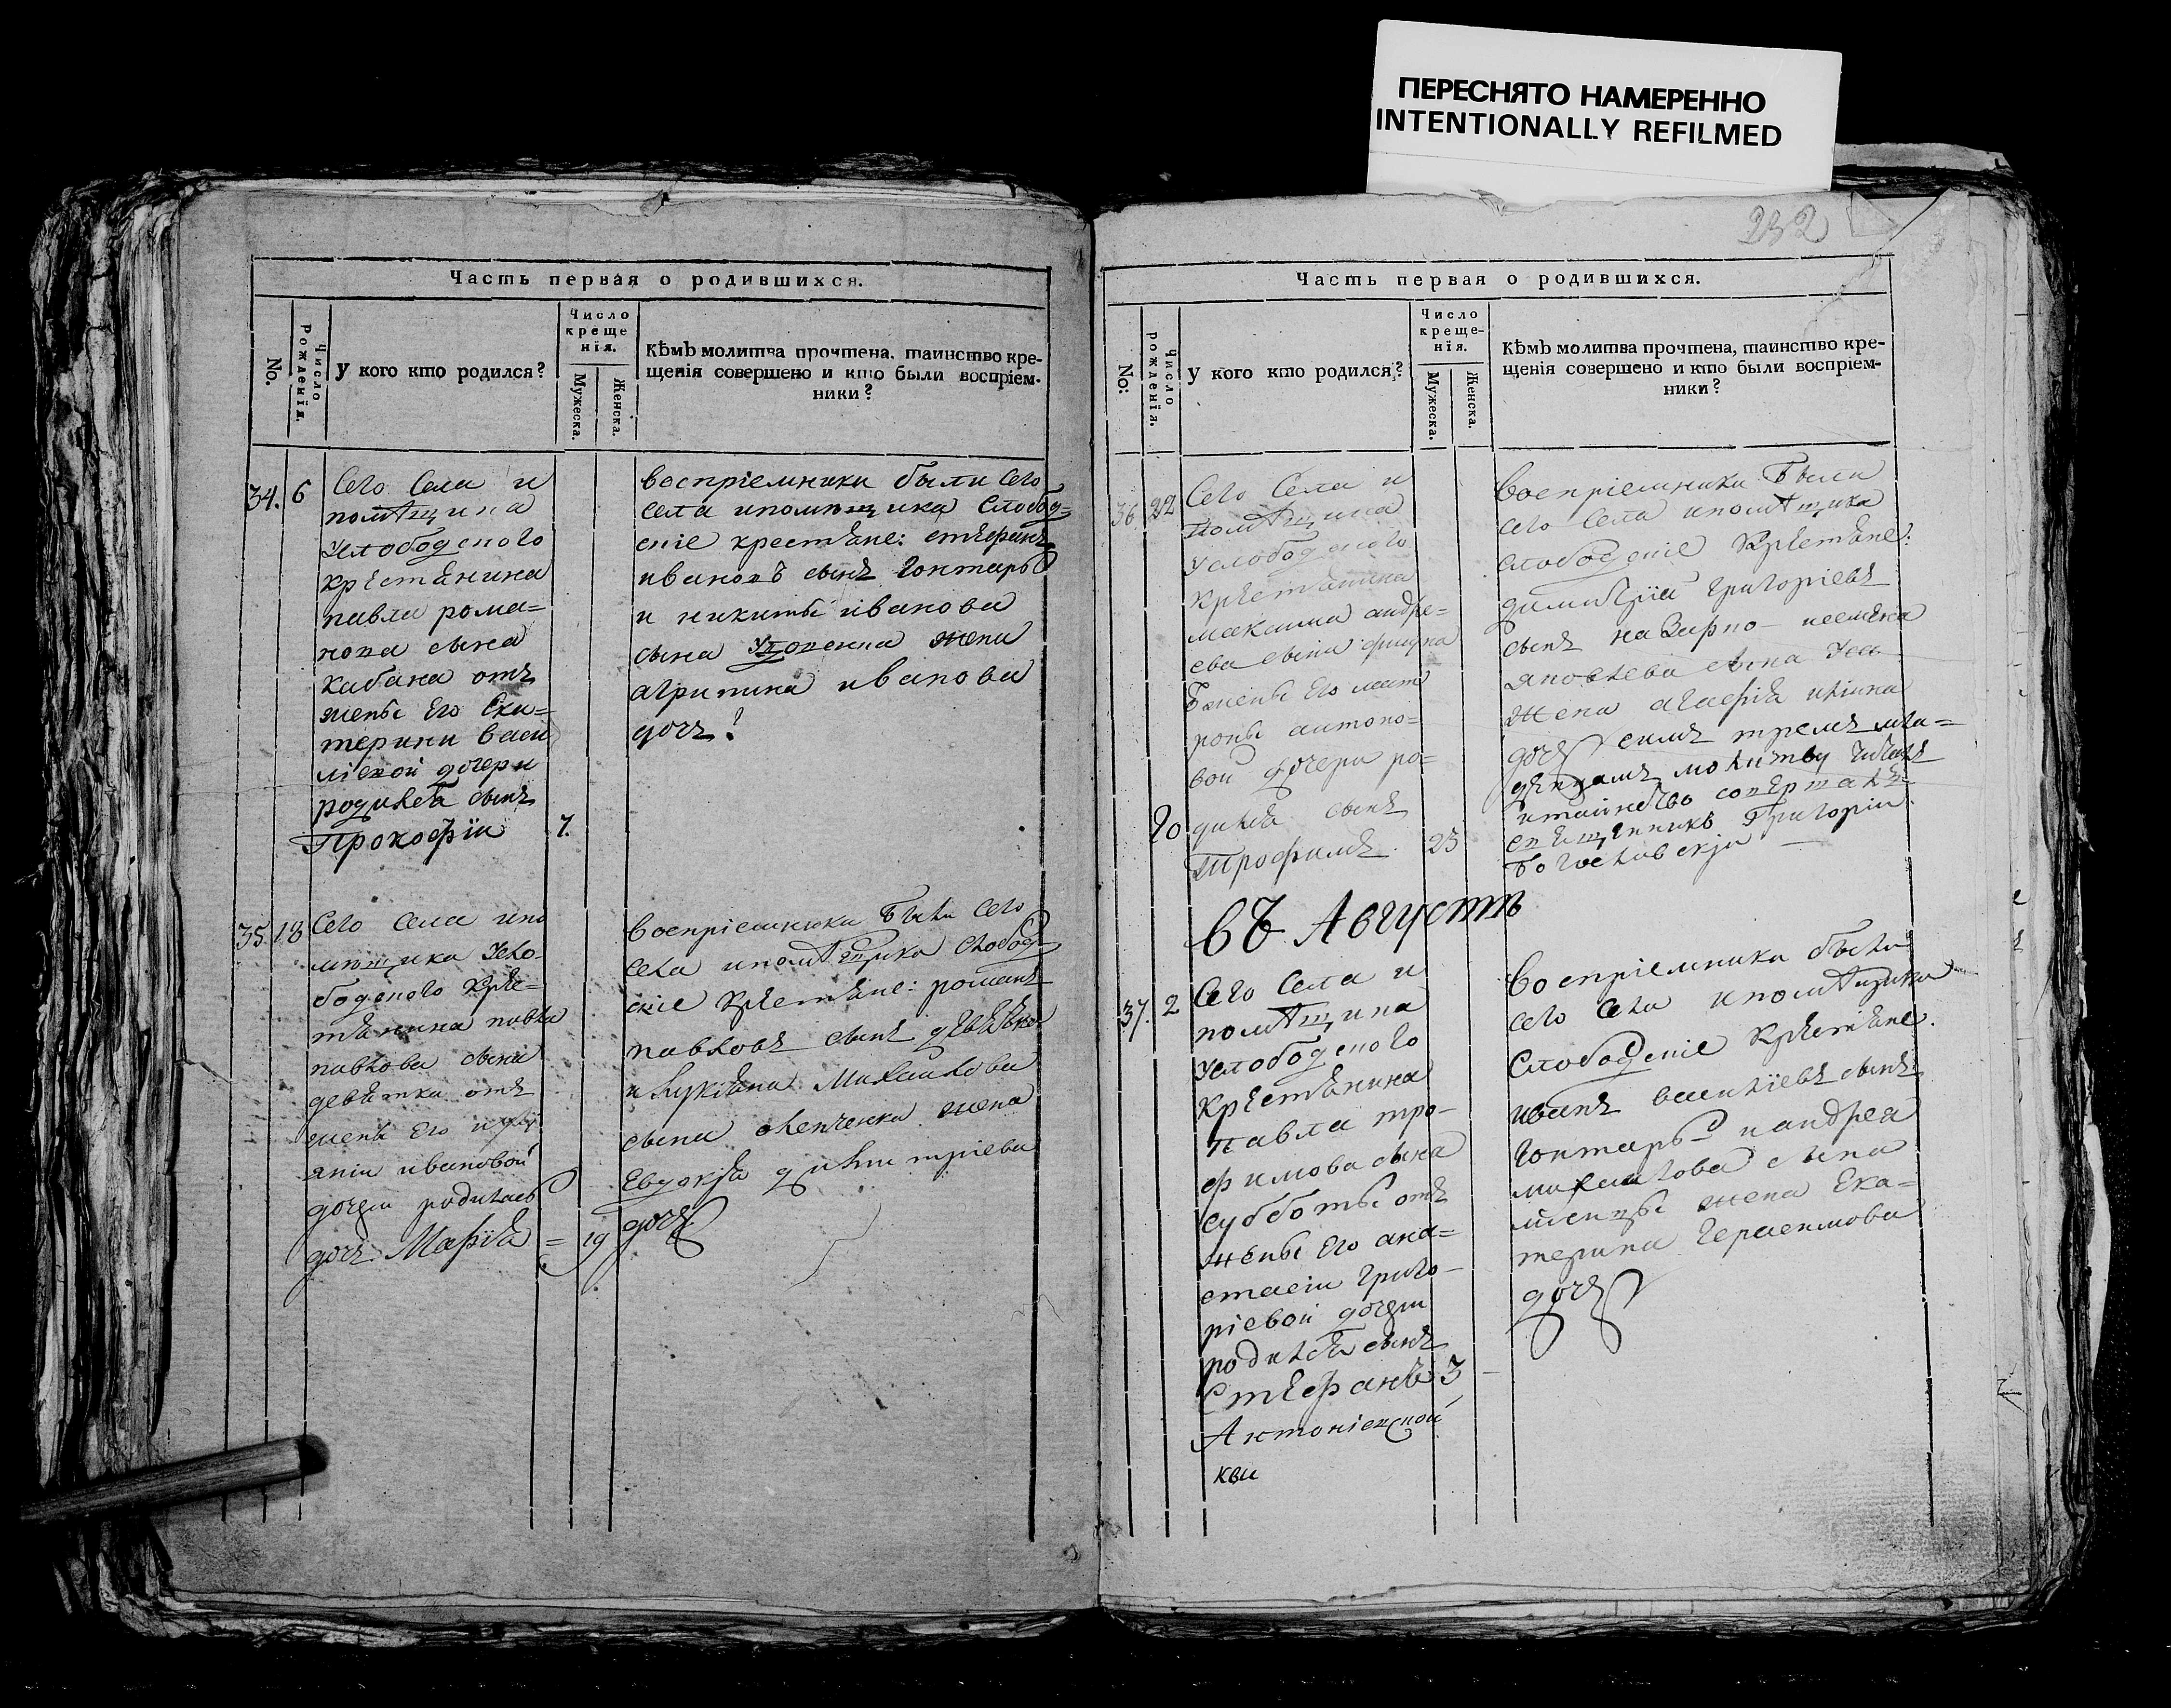 ПЕРЕСНЯТО НАМЕРЕННО
INTENTIONALLY REFILMED
232
Часть первая о родившихся.
No.
Число рожденїя.
У кого кто родился?
Число
креще
нїя.
Мужеска.
Женска.
Кѣмъ молитва прочтена, таинство кре-
щенія совершено и кто были воспріем-
ники?
34. 6
Сего Села и
помѣщика
Услободского
крестянина
павла рома=
нова сына
кабана отъ
жены Его Ека=
терини васи
лїевой дочери
родился сынъ
Прокофїй 7.
воспріемники были сего
села ипомѣщика Слобод=
скіе крестяне: стефанъ
ивановъ сынъ Гонтаръ
и никиты иванова
сына жена
агрипина иванова
дочь.
35. 18
Сего села ипо
мѣщика Усло-
бодского Кре=
стянина павла
павлова сына
девятки отъ
жены Его
яніи ивановой
дочери родилась
дочь Марїя = 19
Воспріемники Были Сего
Села ипомѣщика Слобод
скіе Крестяне: романъ
павловъ сынъ девятка
и лукіяна Михайлова
сына жена
Евдокїя димитріева
дочь
Часть первая о родившихся.
No:
Число рожденїя.
У кого кто родился?
Число
креще-
нїя.
Мужеска.
Женска.
Кѣмъ молитва прочтена, таинство кре-
щенія совершено и кто были воспріем-
ники?
36. 22
Сего Села и
помѣщика
Услободского
Крестянина
максима андре=
ева сына
жены Его мат
роны антоно=
вой дочери ро=
дился сынъ
Трофимъ. 23
20
Воспріемники Были
сего Села ипомѣщика
слободскіе Крестяне:
димитрій Григоріевъ
сынъ
яковлева сына
Жена агафїя
дочь симъ тремъ мла=
денцамъ молитву читалъ
итаинство совершалъ
священникъ Григорій
Богославскїй
въ Августѣ
37. 2
Сего Села и
помѣщика
Услободского
Крестянина
Павла тро-
фимова сына
субботы отъ
жены Его ана=
стасіи Григо-
ріевой дочери
родился сынъ
Стефанъ 3
Антоніевской
кви
Воспріемники были
сего Села ипомѣщика
Слободскіе Крестяне.
иванъ василїевъ сынъ
Гонтаръ и андрея
михайлова сына
жена Ека=
терина Герасимова
дочь